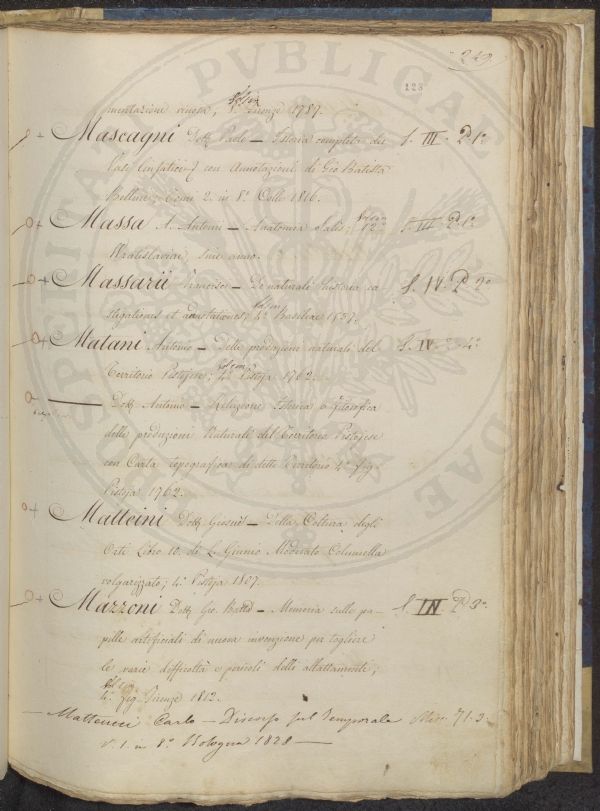 249
123
mentazioni vinose, 8.° Firenze 1787.
Mascagni Dott. Paolo — Istoria completa dei S. III. P. 1.a
Vasi linfatici con Annotazioni di Gio. Batista
Bellini. Tomi 2. in 8.° Colle 1816.
Massa A. Antonii — Anatomia 12.° S. III P. 1.a
Wratislaviae, sine anno.
Massarii — De naturali historia ca- S. IV. P. 2.a
stigationes et annotationes; 4.° Basileae 1537.
Matani Antonio — Delle produzioni naturali del S. IV. 4.a
Territorio Pistojese; 4.° Pistoja 1762.
— Dott. Antonio — Relazione Istorica e filosofica
delle produzioni Naturali del Territorio Pistojese
con Carta topografica di detto Territorio 4.° fig.
Pistoja 1762.
Matteini Dott. — Della Coltura degli
Orti Libro 10. di L. Giunio Moderato Columella
volgarizzato; 4.° Pistoja 1807.
Mazzoni Dott. Gio. Batta — Memoria sulle pa- S. IV P. 3.a
pille artificiali di nuova invenzione per togliere
le varie difficoltà e pericoli dello allattamento;
4.° fig. Firenze 1812.
Matteucci Carlo — Discorso sul Temporale Misc. 71. 3.
V. 1. in 8.° Bologna 1828 —
PUBLICAE